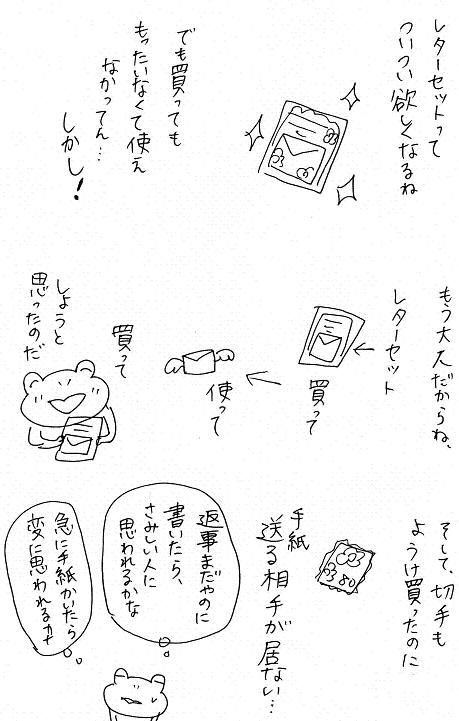 レターセットって
ついつい欲しくなるね
でも買っても
もったいなくて使え
なかってん…
しかし!
もう大人だからね、
レターセット
買って
使って
買って
しようと
思ったのだ
そして、切手も
ようけ買ったのに
80
手紙
送る相手が居ない…
返事まだやのに
書いたら、
さみしい人に
思われるかな
急に手紙かいたら
変に思われるカナ